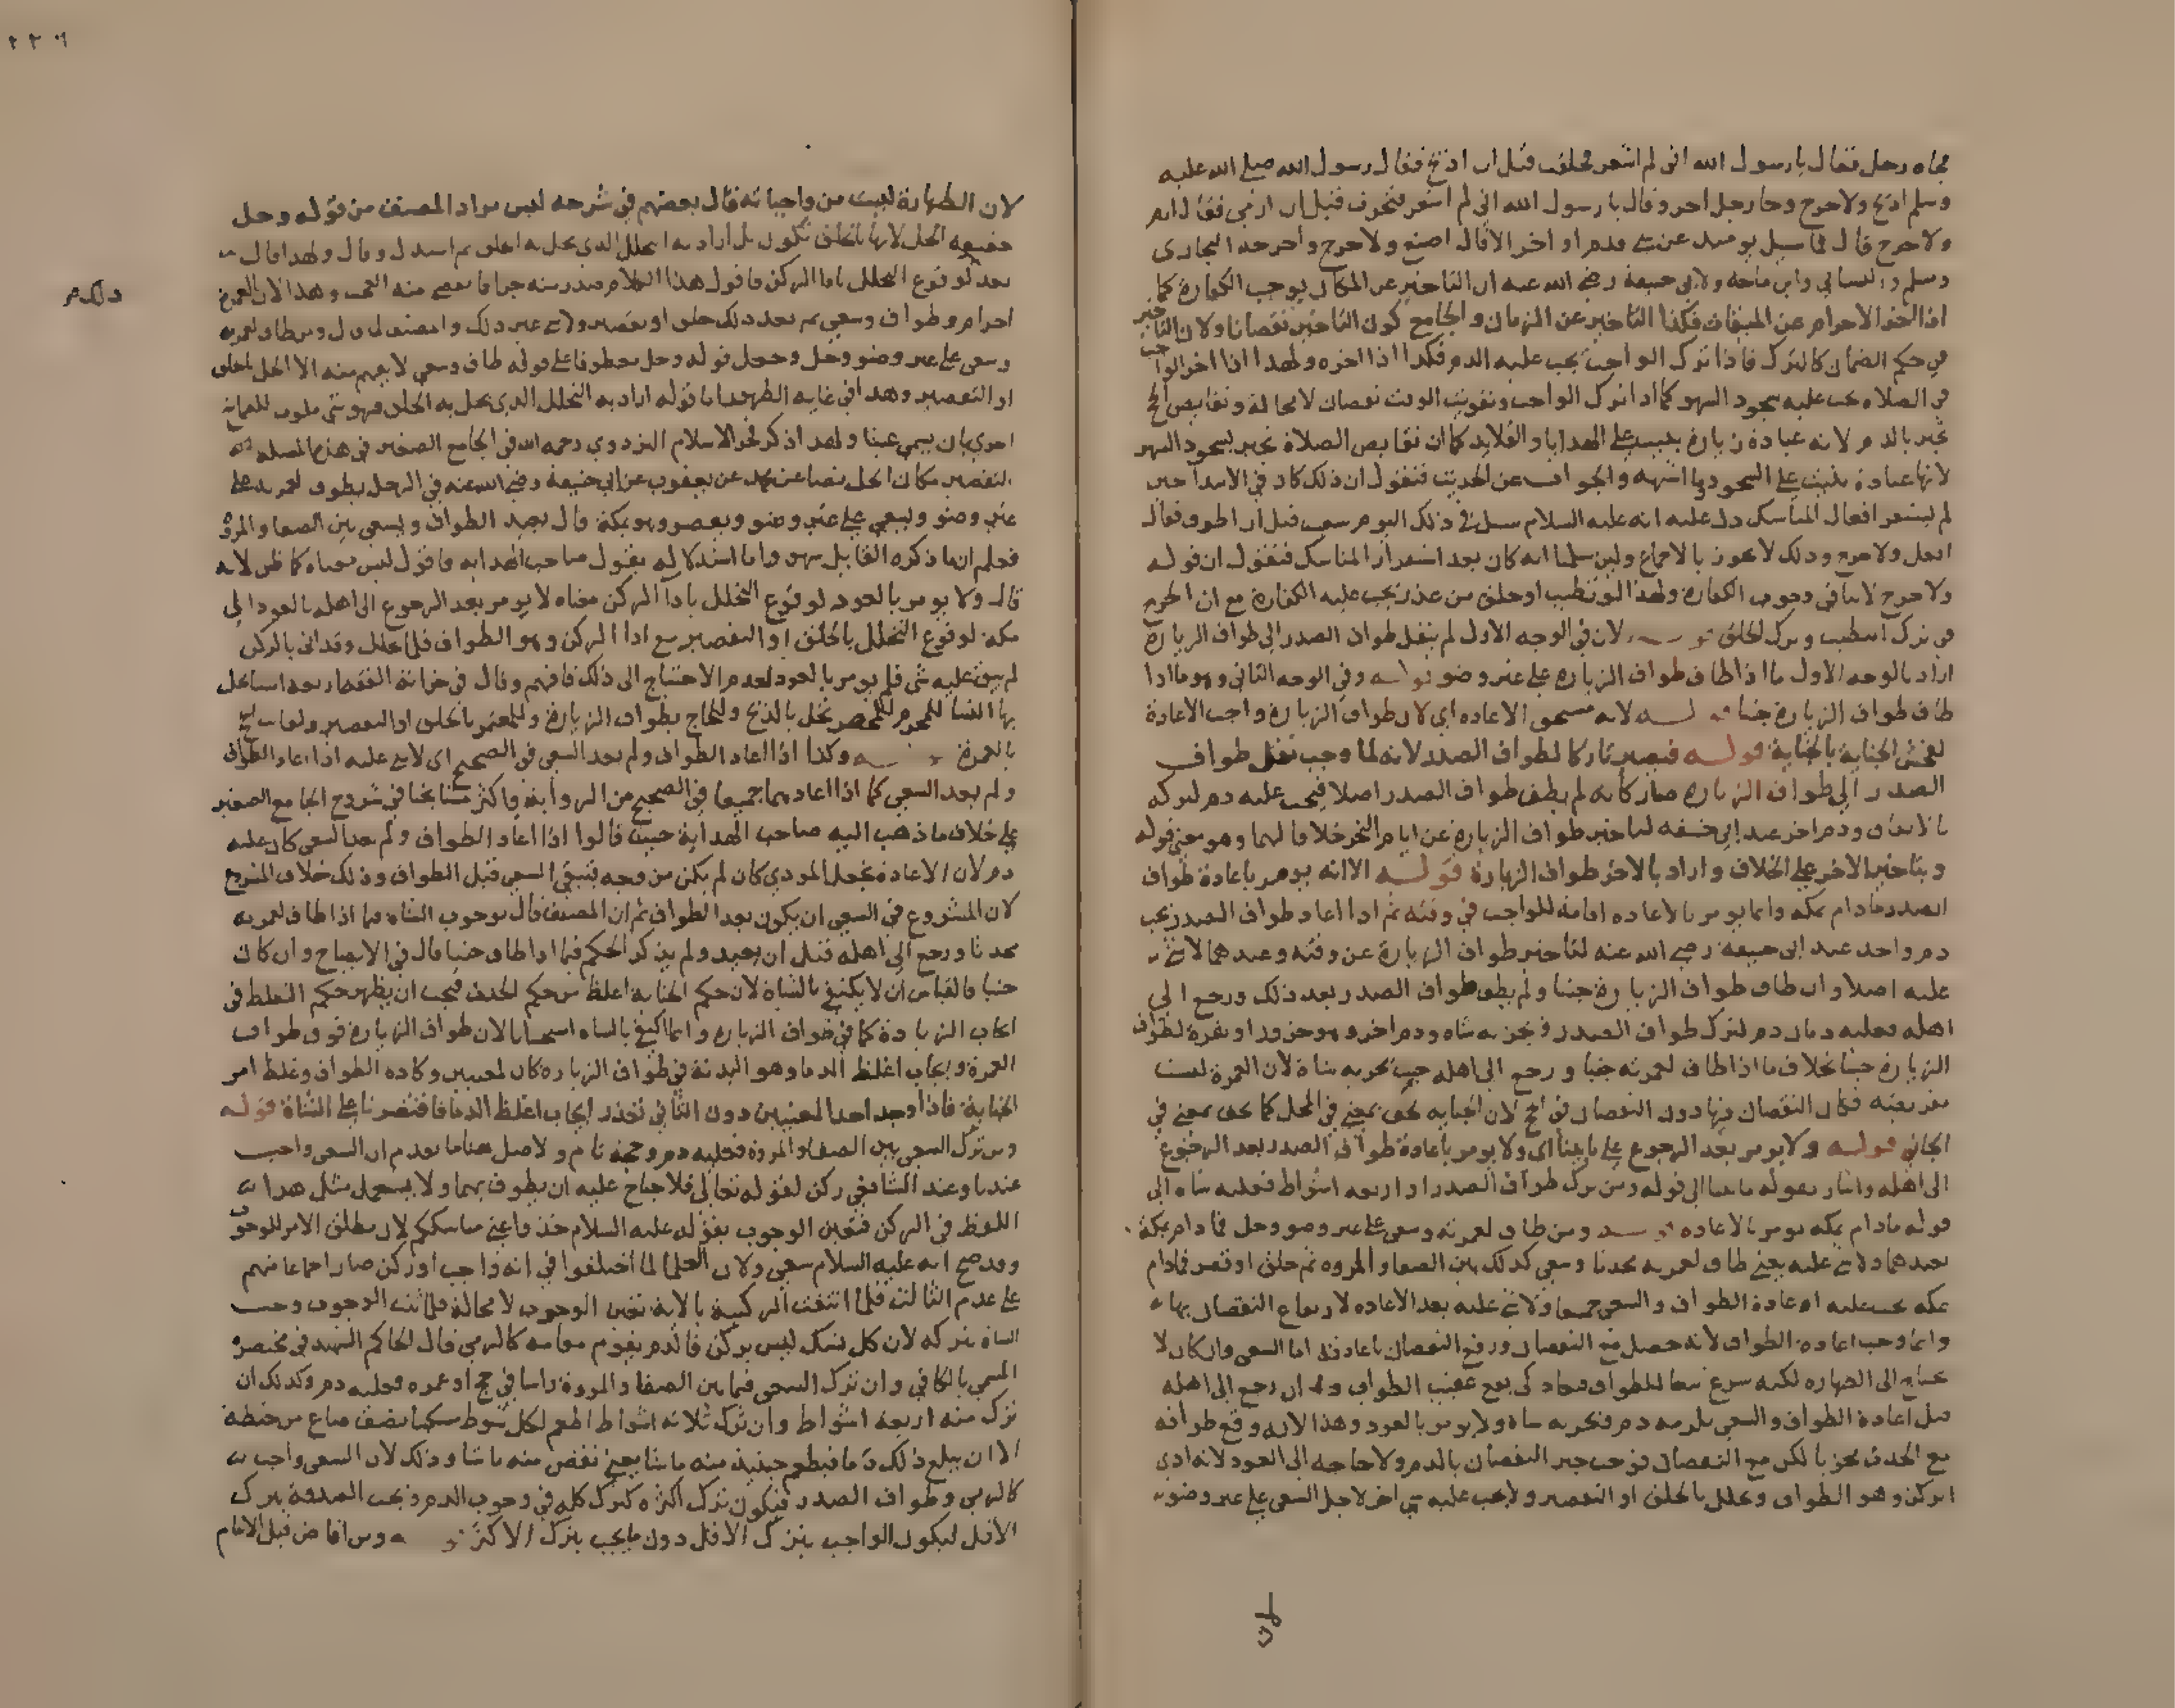 فجاه رجل فقال يا رسول الله اني لم اشعر فحلقت قبل ان اذبح فقال رسول الله صلى الله عليه
وسلم اذبح ولا حرج وجا رجل اخر وقال يا رسول الله اني لم اشعر فنحرت قبل ان ارمي فقال ارم
ولا حرج قال فما سيل يوميد عن شي قدم او اخر الا قال اصنع ولا حرج واخرجه البخاري
ومسلم والنسائي وابن ماجه ولابي حنيفة رضي الله عنه ان التاخير عن المكان يوجب الكفارة كما
اذا اخر الاحرام عن الميقات فكذا التاخير عن الزمان والجامع كون التاخير نقصانا ولان التاخير
في حكم الضمان كالترك فاذا ترك الواجب يجب عليه الدم فكذا اذا اخره ولهذا اذا اخر الواجب
في الصلاة يجب عليه سجود السهو كما اذا ترك الواجب وتفويت الوقت نقصان لا محالة ونقايص الحج
تجبر بالدم لانه عبادة زيارة بنيت على الهدايا والقلايد كما ان نقايص الصلاة تجبر بسجود السهو
لانها عبادة بنيت على السجود وما اشبهه والجواب عن الحديث فنقول ان ذلك كان في الابتدا حين
لم يستقر افعال المناسك دل عليه انه عليه السلام سيل في ذلك اليوم سعيت قبل ان اطوف فقال
افعل ولا حرج وذلك لا يجوز بالاجماع ولين سلمنا انه كان بعد استقرار المناسك فنقول ان قوله
ولا حرج لا ينافي وجوب الكفارة ولهذا لو تطيب او حلق من عذر يجب عليه الكفارة مع ان الحرج
في ترك التطيب وترك الحلق قوله لان في الوجه الاول لم ينقل طواف الصدر الى طواف الزيارة
اراد بالوجه الاول ما اذا طاف طواف الزيارة على غير وضو قوله وفي الوجه الثاني وهو ما اذا
طاف طواف الزيارة جنبا قوله لانه مستحق الاعادة اي لان طواف الزيارة واجب الاعادة
لفحش الجناية بالجنابة قوله فيصير تاركا لطواف الصدر لانه لما وجب نقل طواف
الصدر الى طواف الزيارة صار كانه لم يطف طواف الصدر اصلا فيجب عليه دم لتركه
بالاتفاق ودم اخر عند ابي حنيفه لتاخير طواف الزيارة عن ايام النحر خلافا لهما وهو معنى قوله
وبتاخير الاخر على الخلاف واراد بالاخر طواف الزيارة قوله الا انه يومر باعادة طواف
الصدر ما دام بمكة وانما يومر بالاعاده اقامة للواجب في وقته ثم اذا اعاد طواف الصدر يجب
دم واحد عند ابي حنيفة رضي الله عنه لتاخير طواف الزيارة عن وقته وعندهما لا شي
عليه اصلا وان طاف طواف الزيارة جنبا ولم يطف طواف الصدر بعد ذلك ورجع الى
اهله فعليه دمان دم لترك طواف الصدر فيجزيه شاه ودم اخر وهو جزور او بقرة لطواف
الزيارة جنبا بخلاف ما اذا طاف لعمرته جنبا ورجع الى اهله حيث يجزيه شاة لان العمرة ليست
بفريضة فكان النقصان فيها دون النقصان في الحج لان الجنايه تخف بمعنى في المحل كما تخف بمعنى في
الجاني قوله ولا يومر بعد الرجوع على ما بينا اي ولا يومر باعادة طواف الصدر بعد الرجوع
الى اهله واشار بقوله ما بينا الى قوله ومن ترك طواف الصدر او اربعه اشواط فعليه شاه الى
قوله ما دام بمكه يومر بالاعاده قوله ومن طاف لعمرته وسعى على غير وضو وحل فما دام بمكة
يعيدهما ولا شي عليه يعني طاف لعمرته محدثا وسعى كذلك بين الصفا والمروه ثم حلق او قصر فما دام
بمكه يجب عليه اعادة الطواف والسعي جميعا ولا شي عليه بعد الاعاده لارتفاع النقصان بها
وانما وجب اعادة الطواف لانه حصل مع النقصان ورفع النقصان باعادته اما السعي وان كان لا
يحتاج الى الطهاره لكنه شرع تبعا للطواف فيعاد كي يقع عقيب الطواف وان رجع الى اهله
قبل اعادة الطواف والسعي يلزمه دم فيجزيه شاة ولا يومر بالعود وهذا لانه وقع طوافه
مع الحدث مجزيا لكن مع النقصان فوجب جبر النقصان بالدم ولا حاجه الى العود لانه ادى
الركن وهو الطواف وتحلل بالحلق او التقصير ولا يجب عليه شي اخر لاجل السعي على غير وضوء
لان
٢٢٦
لان الطهارة ليست من واجباته قال بعضهم في شرحه ليس مراد المصنف من قوله وحل
حقيقه الحل لانها بالحلق تكون بل اراد به التحلل الذي يحل به الحلق ثم استدل وقال ولهذا قال
بعد لوقوع التحلل بادا الركن فاقول هذا الكلام صدر منه جزافا يقضى منه العجب وهذا لان العمرة
احرام وطواف وسعي ثم بعد ذلك حلق او تقصير ولا شي غير ذلك والمصنف لما قال ومن طاف لعمرته
وسعى على غير وضو وحل وجعل قوله وحل معطوفا على قوله طاف وسعى لا يفهم منه الا الحل بالحلق
او التقصير وهذا في غاية الظهور اما قوله اراد به التحلل الذي يحل به الحلق فهو شي
احرى بان يسمى عبثا ولهذا ذكر فخر الاسلام البزدوي رحمه الله في الجامع الصغير في هذه المسله
التقصير مكان الحل نصا عن محمد عن يعقوب عن ابي حنيفة رضي الله عنه في الرجل يطوف لعمرته على
غير وضو ويسعى على غير وضو ويقصر وهو بمكة قال يعيد الطواف ويسعى بين الصفا والمروة
فعلم ان ما ذكره القايل سهو واما استدلاله بقول صاحب الهدايه فاقول ليس معناه كما ظن لانه
قال ولا يومر بالعود لوقوع التحلل بادا الركن معناه لا يومر بعد الرجوع الى اهله بالعود الى
مكة لوقوع التحلل بالحلق او التقصير مع ادا الركن وهو الطواف فلما تحلل وقد اتى بالركن
لم يبق عليه شي فلم يومر بالعود لعدم الاحتياج الى ذلك فافهم وقال في خزانة الفقه اربعة اشيا تحل
بها النسا للمحرم المحصر تحل بالذبح والحاج بطواف الزيارة والمعتمر بالحلق او التقصير
بالعمرة قوله وكذا اذا اعاد الطواف ولم يعد السعي في الصحيح اي لا شي عليه اذا اعاد الطواف
ولم يعد السعي كما اذا اعادهما جميعا في الصحيح من الرواية واكثر مشايخنا في شروح الجامع الصغير
على خلاف ما ذهب اليه صاحب الهداية حيث قالوا اذا اعاد الطواف ولم يعد السعي كان عليه
دم لان الاعادة تجعل المودي كان لم يكن من وجه فيبقى السعي قبل الطواف وذلك خلاف المشروع
لان المشروع في السعي ان يكون بعد الطواف ثم ان المصنف قال بوجوب الشاة فيما اذا طاف لعمرته
محدثا ورجع الى اهله قبل ان يعيد ولم يذكر الحكم فيما اذا طاف جنبا قال في الايضاح وان كان
جنبا فالقياس ان لا يكتفى بالشاة لان حكم الجنابة اغلظ من حكم الحدث فيجب ان يظهر حكم التغلظ في
ايجاب الزيادة كما في طواف الزيارة وانما اكتفي بالشاه استحسانا لان طواف الزيارة فوق طواف
العمرة وايجاب اغلظ الدما وهو البدنة في طواف الزيارة كان لمعنيين وكادة الطواف وغلظ امر
الجنابة فاذا وجد احد المعنيين دون الثاني تعذر ايجاب اغلظ الدما فاقتصرنا على الشاة قوله
ومن ترك السعي بين الصفا والمروة فعليه دم وحجه تام والاصل هنا ما تقدم ان السعي واجب
عندنا وعند الشافعي ركن لقوله تعالى فلا جناح عليه ان يطوف بهما ولا يستعمل مثل هذا
اللفظ في الركن فتعين الوجوب بقوله عليه السلام خذوا عني مناسككم لان مطلق الامر للوجوب
وقد صح انه عليه السلام سعى ولان العلما لما اختلفوا في انه واجب او ركن صار اجماعا منهم
على عدم الثالث فلما انتفت الركنية بالاية تعين الوجوب لا محالة فلما ثبت الوجوب وجب
الشاة بتركه لان كل نسك ليس بركن فالدم يقوم مقامه كالرمي قال الحاكم الشهيد في مختصره
المسمى بالكافي وان ترك السعي فيما بين الصفا والمروة راسا في حج او عمرة فعليه دم وكذلك ان
ترك منه اربعة اشواط وان ترك ثلاثة اشواط اطعم لكل شوط مسكينا نصف صاع من حنطة
الا ان يبلغ ذلك دما فيطعم حينيذ منه ما شا يعني ينقص منه ما شا وذلك لان السعي واجب
كالرمي وطواف الصدر فيكون ترك اكثره كترك كله في وجوب الدم وتجب الصدقة بترك
الاقل ليكون الواجب بترك الاقل دون ما يجب بترك الاكثر قوله ومن افاض قبل الامام